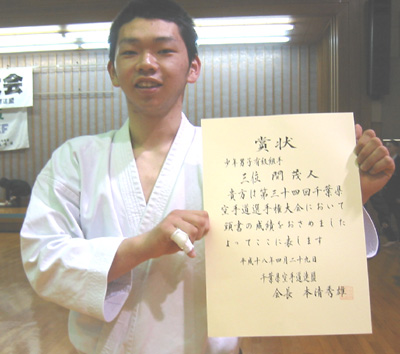 会
賞状
少年男子有級組手
三位 関 茂人
貴方は第三十四回千葉県
空手道選手権大会において
頭書の成績をおさめました
よってここに表します
平成十八年四月二十九日
千葉県空手道連盟
会長 本清秀雄